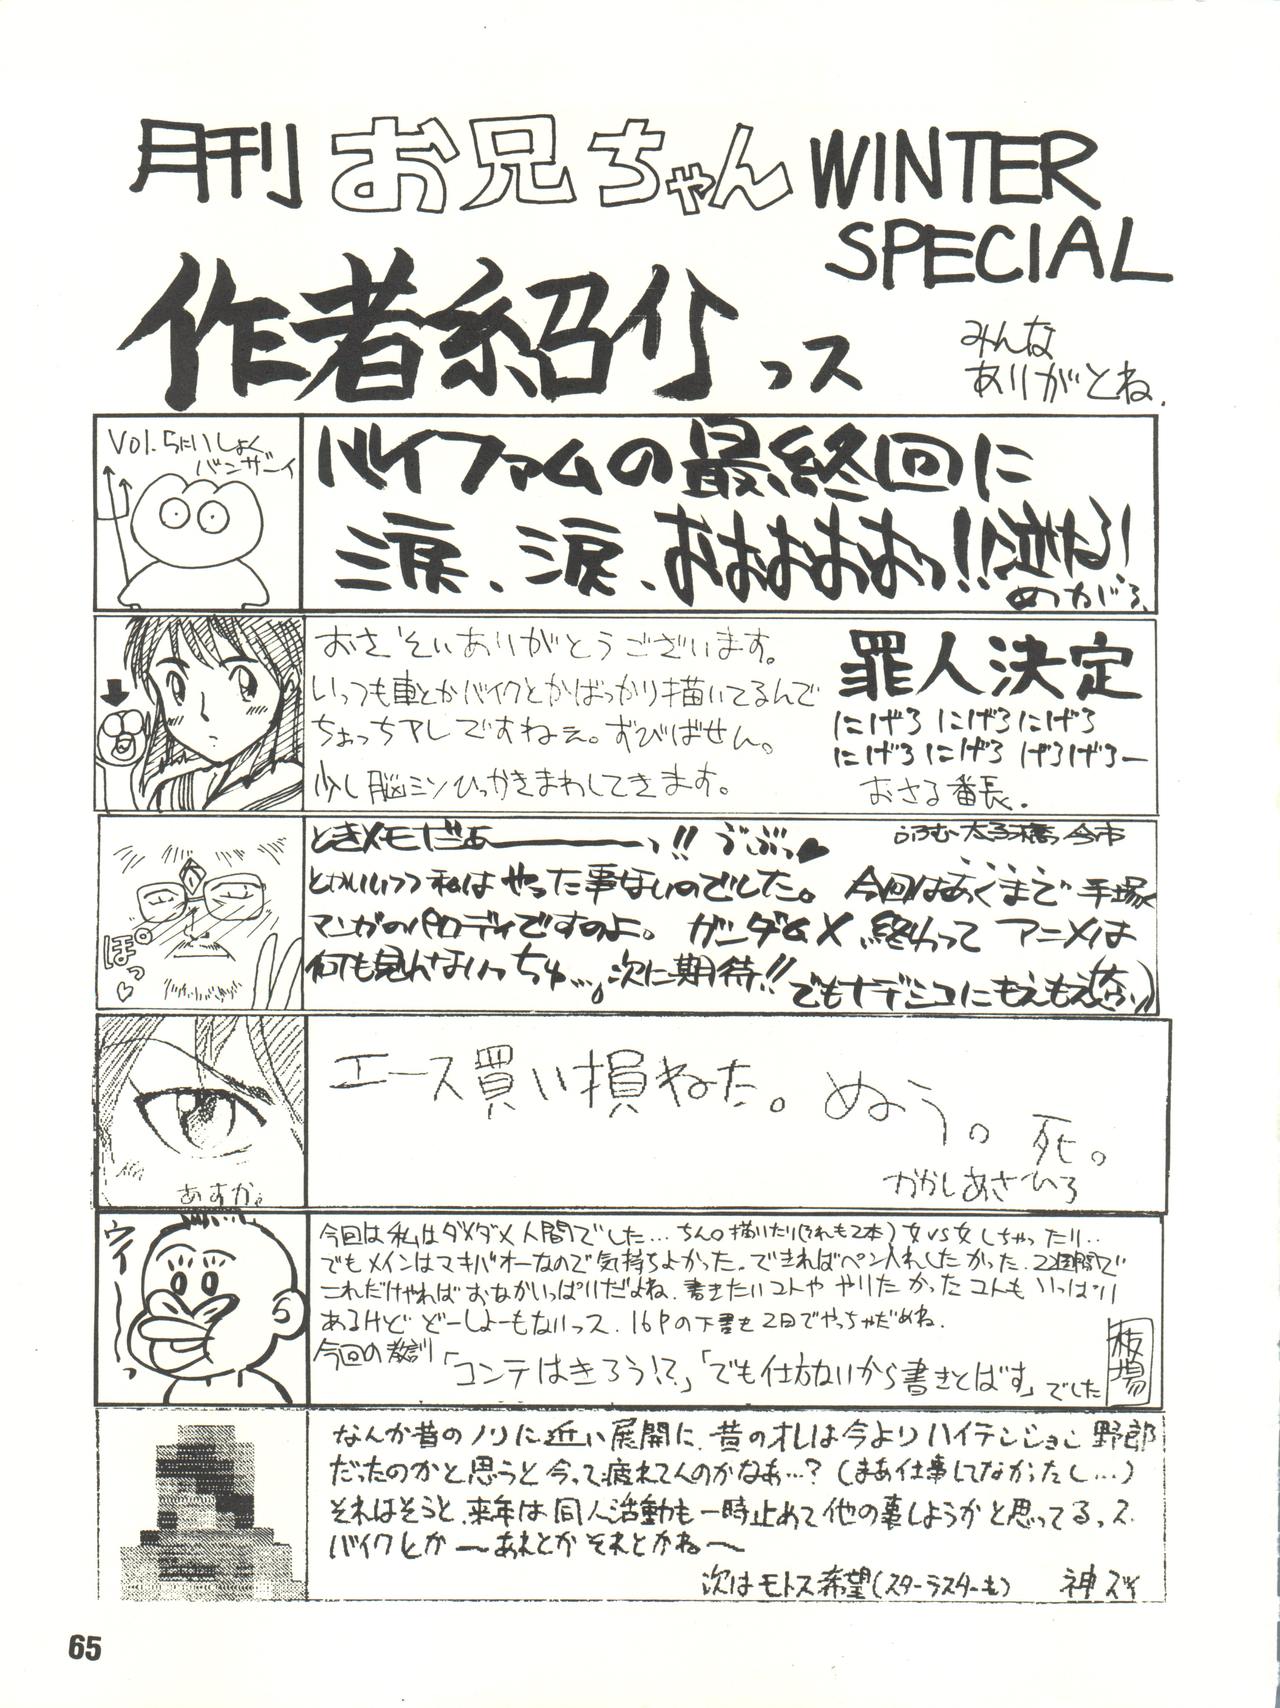 月刊 お兄ちゃん WINTER
SPECIAL
作者紹介っス
みんな
ありがとね.
Vol.5にいしょく
バンザーイ
バイファムの最終回に
涙、涙、おおおおおっ!!
めがじろ、
おさそいありがとうございます。
いっつも車とかバイクとかばっかり描いてるんで
ちょっちアレですねぇ。ずびばせん。
少し脳ミソひっかきまわしてきます。
罪人決定
にげろ にげろにげろ
にげろにげろ げろげろー
おさる番長.
ぽっ♡
ときメモだぁーーーっ!! ぶぶっ♥
ふろむ〜太子橋今市
とかいいつつ私はやった事ないのでした。 今回はあくまで手塚
マンガのパロディですのよ。 ガンダムX終わって アニメは
何も見れないっちゅ…。次に期待!! でもナデシコにもえもえ(笑)
あすか。
エース買い損ねた。ぬぅう。死。
かかしあさひろ
ウイーーっ
今回は私はダメダメ人間でした… ちん○描いたり(それも2本)女VS女しちゃったり…
でもメインはマキバオーなので気持ちよかった。できればペン入れしたかった.2週間で
これだけやればおなかいっぱいだよね.書きたいコトや やりたかったコトもいっぱい
あるけど どーしよーもないっス.16Pの下書き2日でやっちゃだめね.
今回の教訓「コンテはきろう!?」「でも仕方ないから書きとばす」でした
板場
なんか昔のノリに近い展開に.昔のオレは今よりハイテンション野郎
だったのかと思うと今って疲れてんのかなぁ…?(まあ仕事してなかったし…)
それはそうと、来年は同人活動も一時止めて他の事しようかと思ってるっス.
バイクとか〜あれとかそれとかね〜
次はモトス希望(スターラスターも) 神ズイ
65